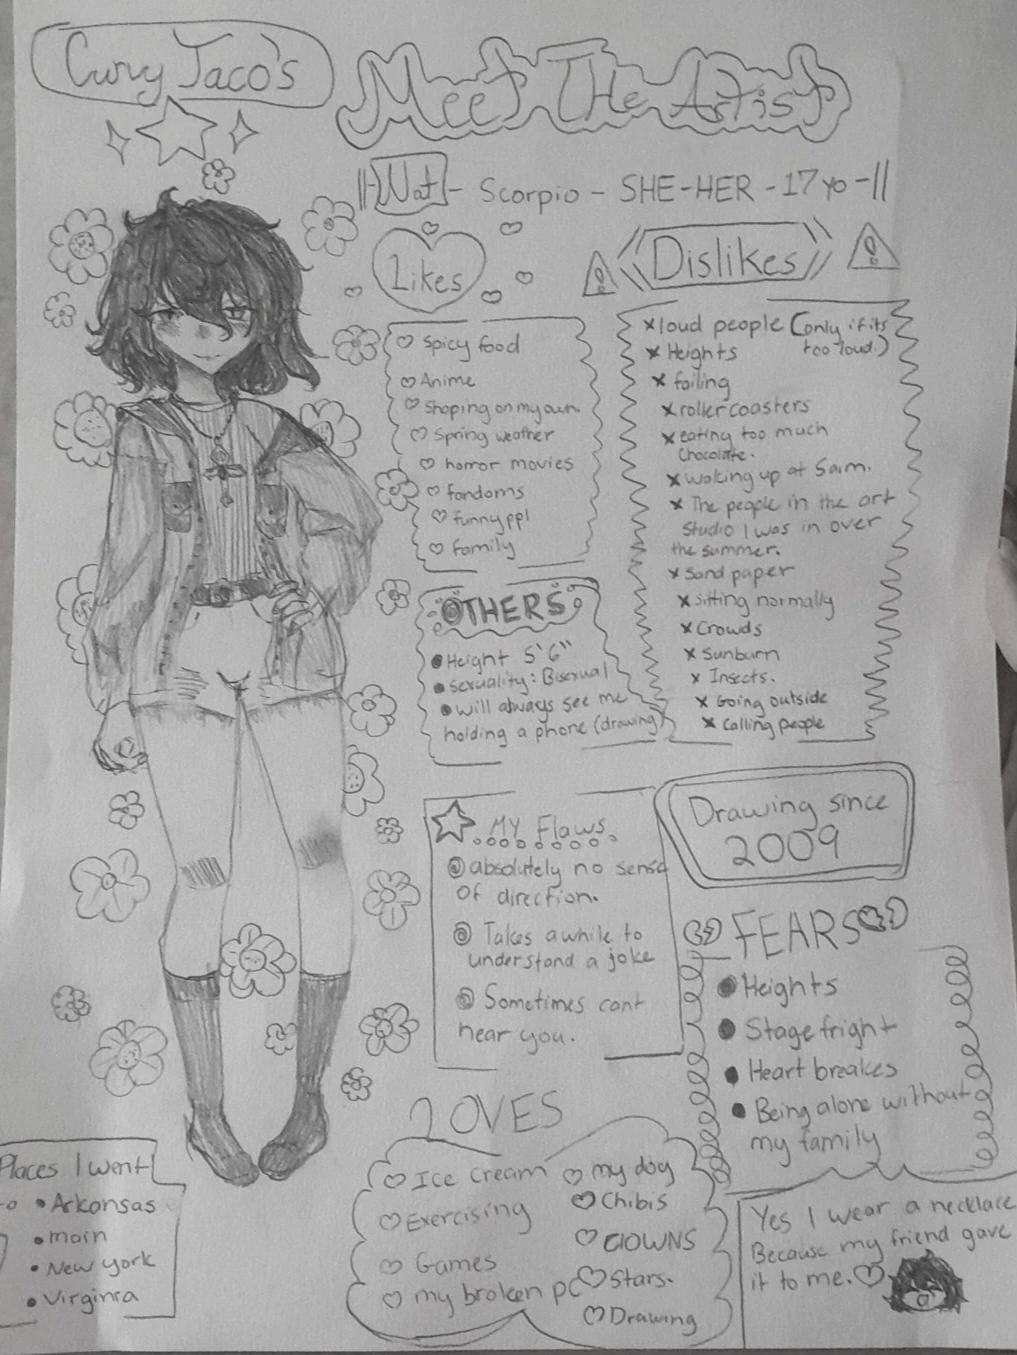 Curry Taco's
Meet THe Artist
Wat - Scorpio - SHE-HER - 17 yo -
Likes
Spicy food
Anime
Shoping on my own.
Spring weather
horror movies
fandoms
funny ppl
family
Dislikes
x loud people (only if its
too loud.)
x Heights
x failing
x roller coasters
x eating too much
Chocolate.
x waking up at 5am.
x The people in the art
Studio I was in over
the summer.
x Sand paper
x sitting normally
x Crowds
x Sunburn
x Insects.
x Going outside
x Calling people
OTHERS
• Height 5'6"
• Sexuality: Bisexual
• will always see me
holding a phone (drawing)
MY Flaws
absolutely no sense
Of direction.
Takes awhile to
understand a joke
Sometimes cant
hear you.
Drawing since
2009
FEARS
• Heights
• Stage fright
• Heart breakes
• Being alone without
my family
LOVES
Ice cream
Exercising
Games
my broken pc
my dog
Chibis
ClOWNS
Stars.
Drawing
Places I went
to • Arkansas
• main
• New york
• Virginra
Yes I wear a necklace
Because my friend gave
it to me.